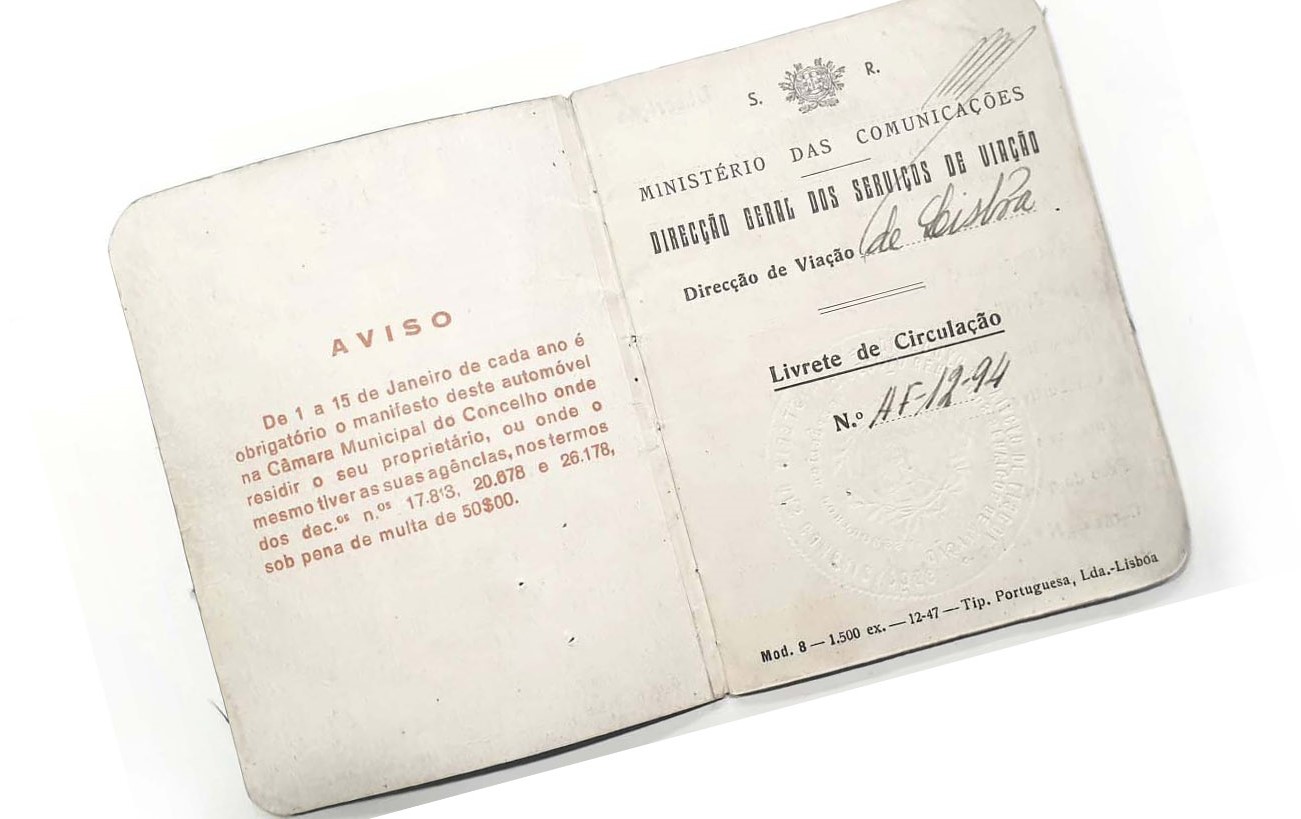 AVISO
De 1 a 15 de Janeiro de cada ano é
obrigatório o manifesto deste automóvel
na Câmara Municipal do Concelho onde
residir o seu proprietário, ou onde o
mesmo tiver as suas agências, nos termos
dos dec.ºˢ n.ºˢ 17.813, 20.678 e 26.178,
sob pena de multa de 50$00.
S. R.
MINISTÉRIO DAS COMUNICAÇÕES
DIRECÇÃO GERAL DOS SERVIÇOS DE VIAÇÃO
Direcção de Viação de Lisboa
Livrete de Circulação
N.º AF-12-94
Mod. 8 — 1.500 ex. — 12-47 — Tip. Portuguesa, Lda.-Lisboa